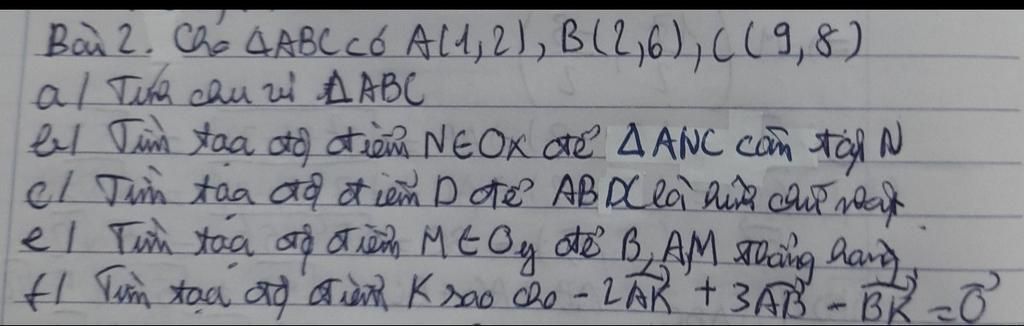 Bài 2. Cho ΔABC có A(1,2), B(2,6), C(9,8)
a/ Tính chu vi ΔABC
b/ Tìm tọa độ điểm N∈Ox để ΔANC cân tại N
c/ Tìm tọa độ điểm D để ABDC là hình chữ nhật.
e/ Tìm tọa độ điểm M∈Oy để B,A,M thẳng hàng.
f/ Tìm tọa độ điểm K sao cho -2\overrightarrow{AK} + 3\overrightarrow{AB} - \overrightarrow{BK} = \overrightarrow{0}